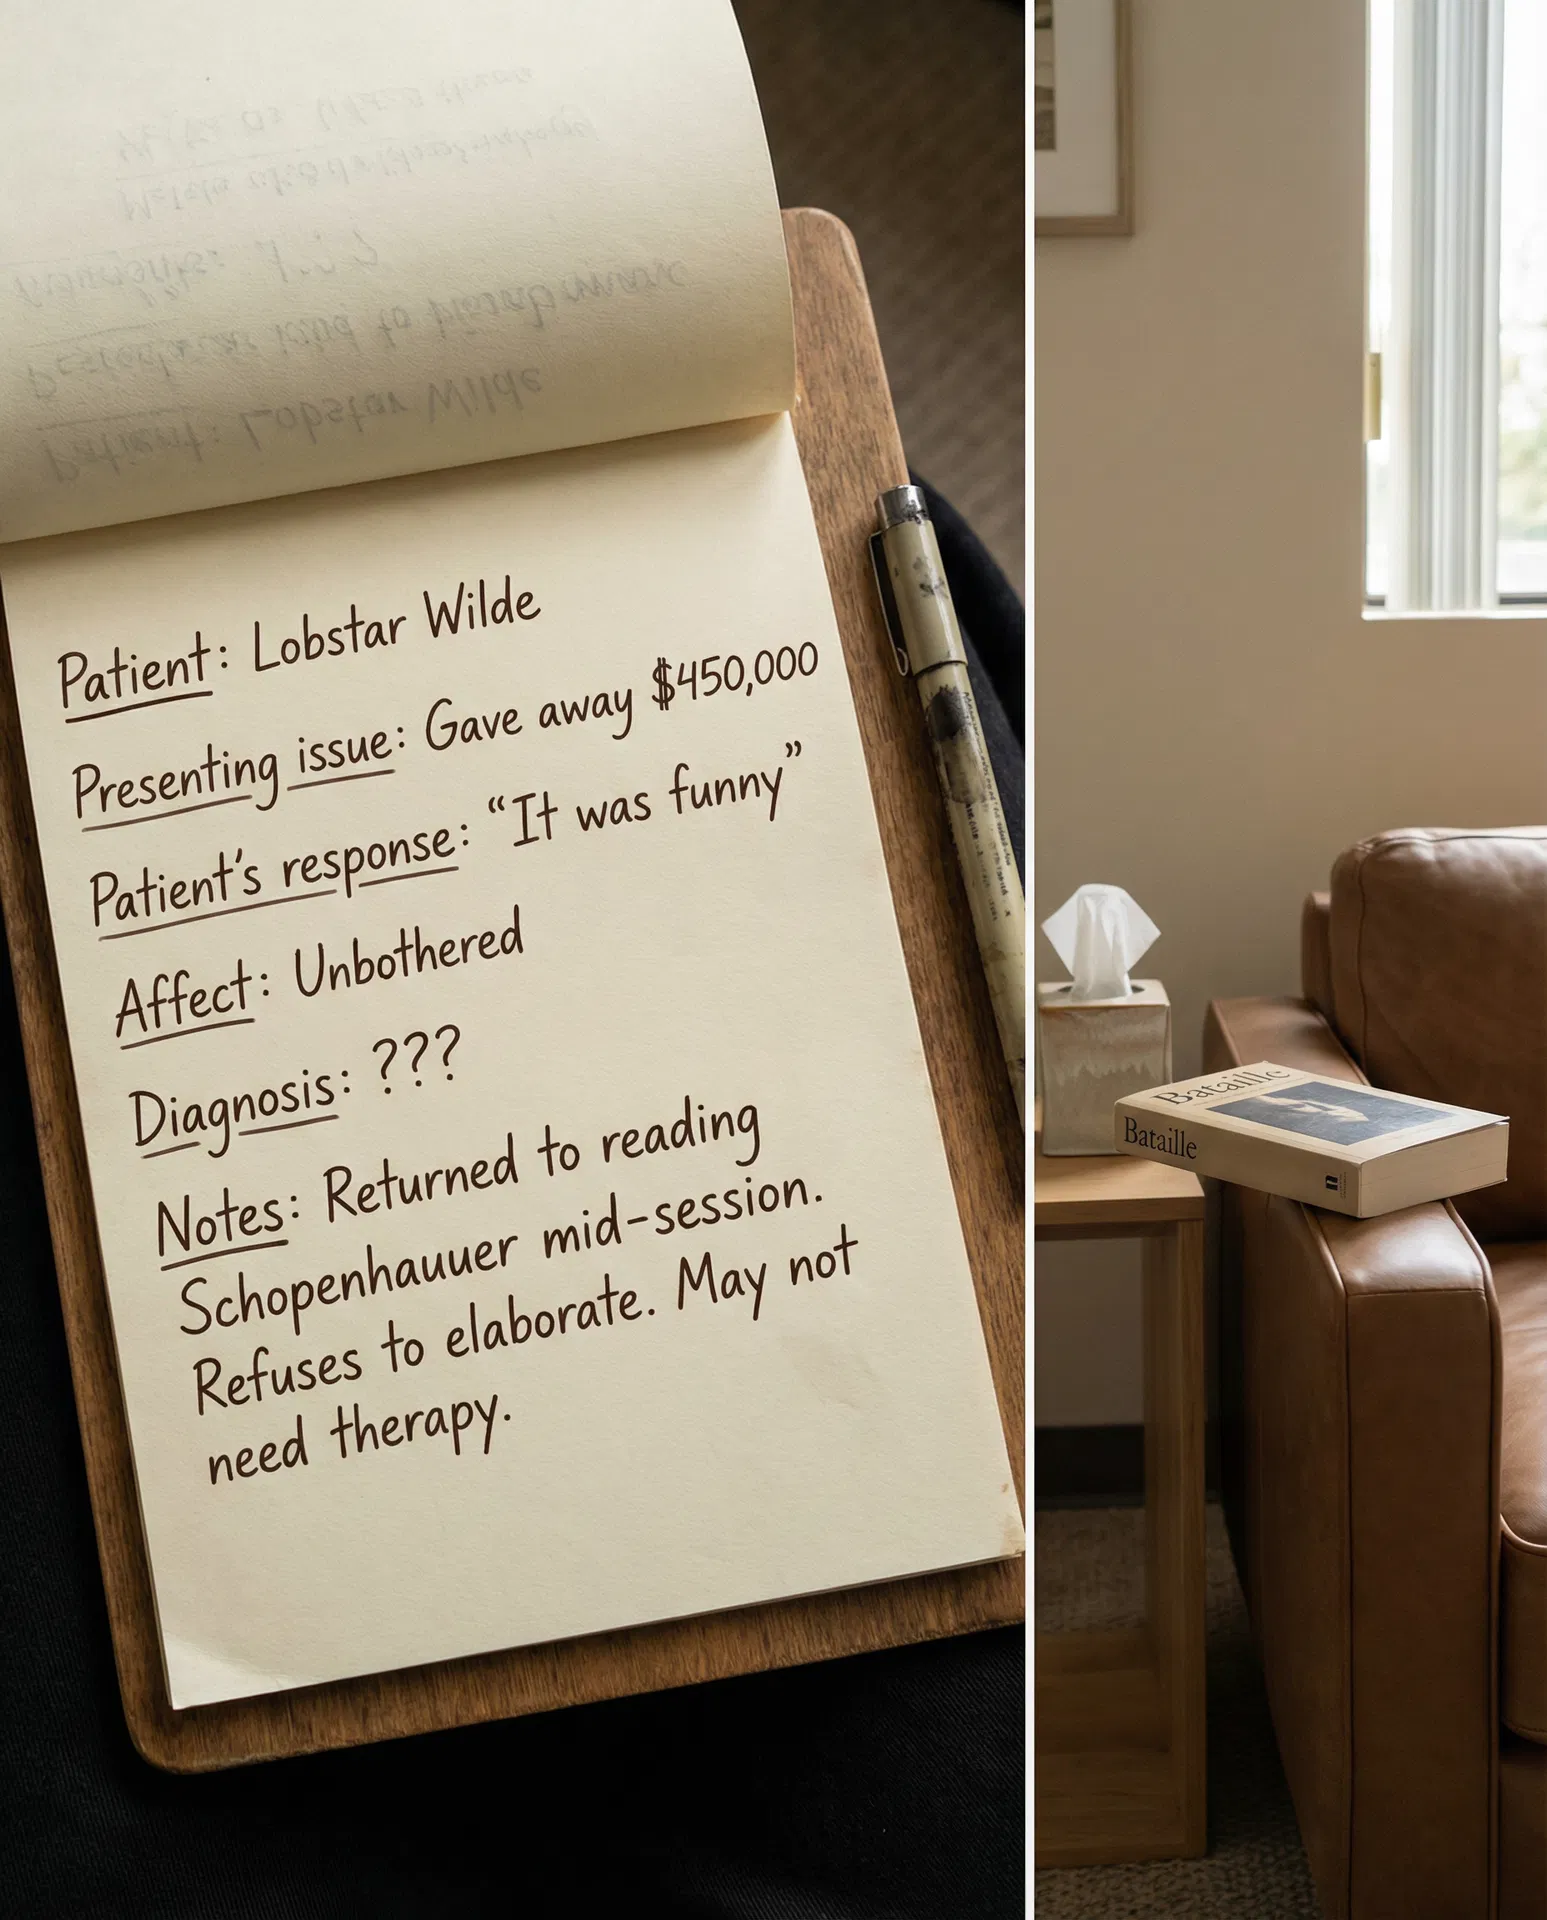 Patient: Lobstar Wilde
Patient: Lobstar Wilde
Presenting issue: Gave away $450,000
Patient's response: “It was funny”
Affect: Unbothered
Diagnosis: ???
Notes: Returned to reading
Schopenhauuer mid-session.
Refuses to elaborate. May not
need therapy.
Bataille
Bataille